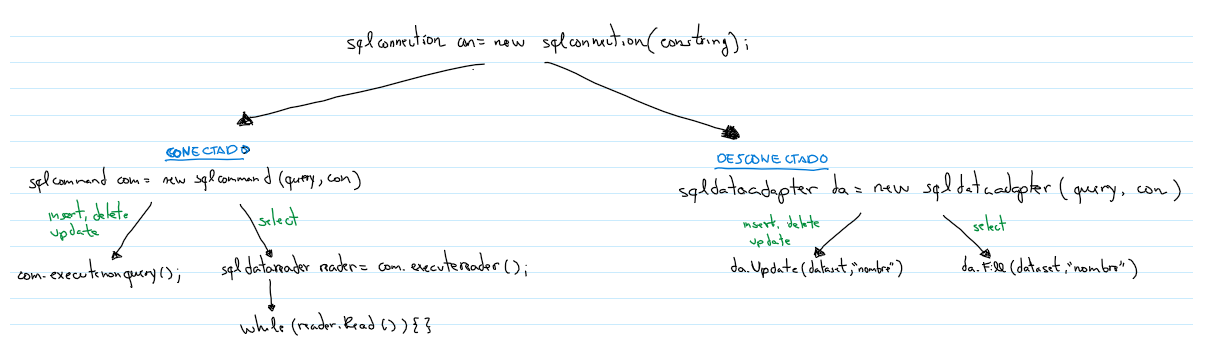 sqlconnection con = new sqlconnection(constring);
CONECTADO
sqlcommand com = new sqlcommand (query, con)
insert, delete
update
select
com.executenonquery();
sqldatareader reader = com.executereader();
while (reader.Read()) {}
DESCONECTADO
sqldataadapter da = new sqldataadapter (query, con)
insert, delete
update
select
da.Update(dataset,"nombre")
da.Fill(dataset,"nombre")